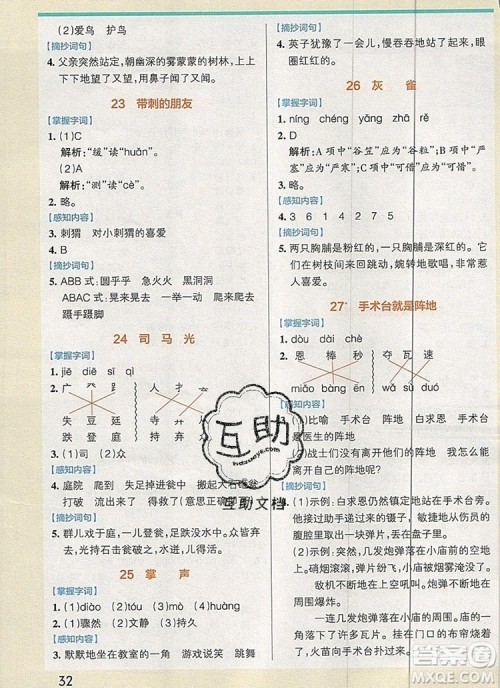 (2)爱鸟 护鸟
【摘抄词句】
4. 父亲突然站定,朝幽深的雾蒙蒙的树林,上上
下下地望了又望,用鼻子闻了又闻。
23 带刺的朋友
【掌握字词】
1. (1)C
解析:“缓”读“huǎn”。
(2)A
解析:“测”读“cè”。
2. 略。
【感知内容】
3. 刺猬 对小刺猬的喜爱
4. B
【摘抄词句】
5. ABB 式:圆乎乎 急火火 黑洞洞
ABAC 式:一起一落 一举一动
蹑手蹑脚
24 司马光
【掌握字词】
1. jiē diē jī
2. 广
失 豆 廷 寺 廾
跌 登 庭 持 弃
3. (1)司 (2)众
【感知内容】
4. 庭院 爬到 失足掉进 搬起大石
打破 流出来 得救了
【摘抄词句】
5. 群儿戏于庭,一儿登瓮,足跌没水中。众皆弃
去,光持石击瓮破之,水迸,儿得活。
25 掌声
【掌握字词】
1. (1)diào (2)tóu (3)mò
2. (1)骤然 (2)文静
【感知内容】
3. 默默地坐在教室的一角 游戏说笑 跳舞
32
【摘抄词句】
4. 英子犹豫了一会儿,慢吞吞地站了起来,眼
圈红红的。
26 灰雀
【掌握字词】
1. níng chéng yǎng mǎo què
2. D
解析:A 项中“谷笠”应为“谷粒”;B 项中“严
塞”应为“严寒”;C 项中“可借”应为“可惜”。
3. 略。
【感知内容】
4. 3 6 1 4 2 7 5
【摘抄词句】
5. 两只胸脯是粉红的,一只胸脯是深红的。它
们在树枝间来回跳动,婉转地歌唱,非常惹
人喜爱。
27* 手术台就是阵地
【掌握字词】
1. dòu dài chè
2. 恩 棒 秒 夺 瓦 速
miǎo bàng ēn wǎ sù duó
【感知内容】
3. (1)比喻 手术台 阵地 白求恩 手术台
是医生的阵地
(2)战士们没有离开他们的阵地 我怎么能
离开自己的阵地
【摘抄词句】
4. (1)示例:白求恩仍然镇定地站在手术台旁。
他接过助手递过来的镊子,敏捷地从伤员的
腹腔里取出一块弹片,扔在盘子里。
(2)示例:突然,几发炮弹落在小庙前的空地
上。硝烟滚滚,弹片纷飞,小庙被烟雾淹没了。
敌机在上空吼叫,炮弹不断地在小庙
周围爆炸。
一连几发炮弹落在小庙的周围。庙的
一角落下了许多瓦片。挂在门口的布帘烧着
了,火苗向手术台扑过来。
互助
www.huzuoye.com
互助文档
答案圈
MXQE.COM